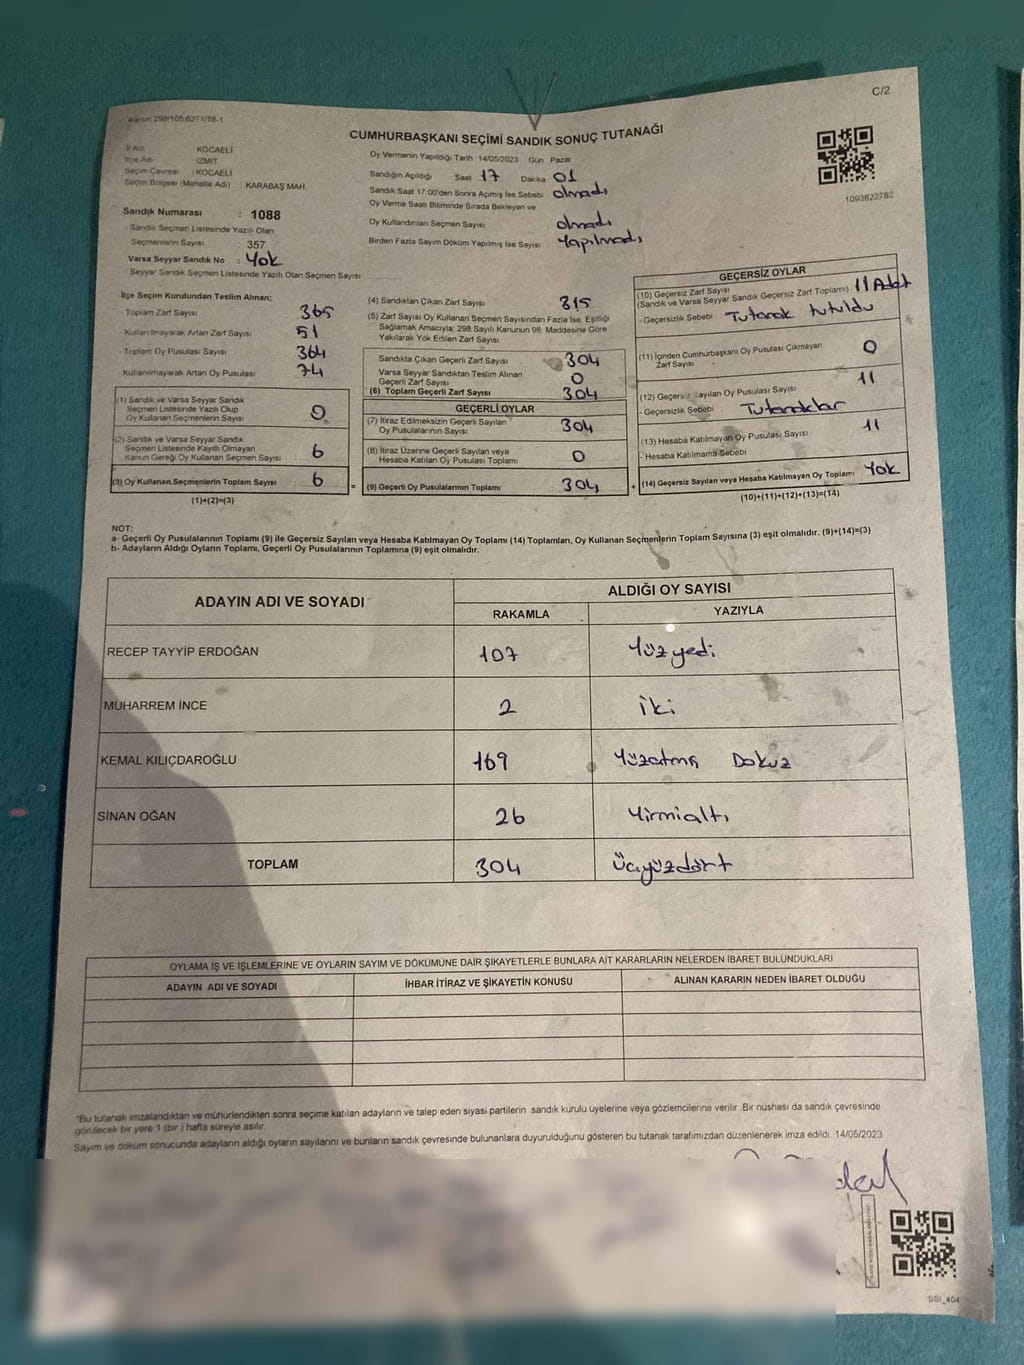 Kanun 298/105,6271/18-1
C/2
CUMHURBAŞKANI SEÇİMİ SANDIK SONUÇ TUTANAĞI
İl Adı KOCAELİ
İlçe Adı İZMİT
Seçim Çevresi : KOCAELİ
Seçim Bölgesi (Mahalle Adı) KARABAŞ MAH.
Oy Vermenin Yapıldığı Tarih 14/05/2023 Gün Pazar
Sandığın Açıldığı Saat 17 Dakika 01
Sandık Saat 17:00'den Sonra Açımış İse Sebebi olmadı
Oy Verme Saati Bitiminde Sırada Bekleyen ve
Oy Kullandırılan Seçmen Sayısı olmadı
Birden Fazla Sayım Döküm Yapılmış İse Sayısı Yapılmadı
1093822782
Sandık Numarası : 1088
Sandık Seçmen Listesinde Yazılı Olan
Seçmenlerin Sayısı : 357
Varsa Seyyar Sandık No : Yok
Seyyar Sandık Seçmen Listesinde Yazılı Olan Seçmen Sayısı
İlçe Seçim Kurulundan Teslim Alınan;
Toplam Zarf Sayısı 365
Kullanılmayarak Artan Zarf Sayısı 51
Toplam Oy Pusulası Sayısı 364
Kullanılmayarak Artan Oy Pusulası 74
(1) Sandık ve Varsa Seyyar Sandık
Seçmen Listesinde Yazılı Olup
Oy Kullanan Seçmenlerin Sayısı 0
(2) Sandık ve Varsa Seyyar Sandık
Seçmen Listesinde Kayıtlı Olmayan
Kanun Gereği Oy Kullanan Seçmen Sayısı 6
(3) Oy Kullanan Seçmenlerin Toplam Sayısı 6
(1)+(2)=(3)
(4) Sandıktan Çıkan Zarf Sayısı 315
(5) Zarf Sayısı Oy Kullanan Seçmen Sayısından Fazla İse, Eşitliği
Sağlamak Amacıyla; 298 Sayılı Kanunun 98. Maddesine Göre
Yakılarak Yok Edilen Zarf Sayısı
Sandıkta Çıkan Geçerli Zarf Sayısı 304
Varsa Seyyar Sandıktan Teslim Alınan
Geçerli Zarf Sayısı 0
(6) Toplam Geçerli Zarf Sayısı 304
GEÇERLİ OYLAR
(7) İtiraz Edilmeksizin Geçerli Sayılan
Oy Pusulalarının Sayısı 304
(8) İtiraz Üzerine Geçerli Sayılan veya
Hesaba Katılan Oy Pusulası Toplamı 0
= (9) Geçerli Oy Pusulalarının Toplamı 304 +
GEÇERSİZ OYLAR
(10) Geçersiz Zarf Sayısı
(Sandık ve Varsa Seyyar Sandık Geçersiz Zarf Toplamı) 11 Adet
- Geçersizlik Sebebi Tutanak tutuldu
(11) İçinden Cumhurbaşkanı Oy Pusulası Çıkmayan
Zarf Sayısı 0
(12) Geçersiz Sayılan Oy Pusulası Sayısı 11
- Geçersizlik Sebebi Tutanaklar
(13) Hesaba Katılmayan Oy Pusulası Sayısı 11
- Hesaba Katılmama Sebebi
(14) Geçersiz Sayılan veya Hesaba Katılmayan Oy Toplamı Yok
(10)+(11)+(12)+(13)=(14)
NOT:
a- Geçerli Oy Pusulalarının Toplamı (9) ile Geçersiz Sayılan veya Hesaba Katılmayan Oy Toplamı (14) Toplamları, Oy Kullanan Seçmenlerin Toplam Sayısına (3) eşit olmalıdır. (9)+(14)=(3)
b- Adayların Aldığı Oyların Toplamı, Geçerli Oy Pusulalarının Toplamına (9) eşit olmalıdır.
ADAYIN ADI VE SOYADI
ALDIĞI OY SAYISI
RAKAMLA YAZIYLA
RECEP TAYYİP ERDOĞAN 107 Yüz yedi
MUHARREM İNCE 2 İki
KEMAL KILIÇDAROĞLU 169 Yüzatmış Dokuz
SİNAN OĞAN 26 Yirmialtı
TOPLAM 304 Üçyüzdört
OYLAMA İŞ VE İŞLEMLERİNE VE OYLARIN SAYIM VE DÖKÜMÜNE DAİR ŞİKAYETLERLE BUNLARA AİT KARARLARIN NELERDEN İBARET BULUNDUKLARI
ADAYIN ADI VE SOYADI İHBAR İTİRAZ VE ŞİKAYETİN KONUSU ALINAN KARARIN NEDEN İBARET OLDUĞU
*Bu tutanak imzalandıktan ve mühürlendikten sonra seçime katılan adayların ve talep eden siyasi partilerin sandık kurulu üyelerine veya gözlemcilerine verilir. Bir nüshası da sandık çevresinde
görülecek bir yere 1 (bir ) hafta süreyle asılır.
Sayım ve döküm sonucunda adayların aldığı oyların sayılarını ve bunların sandık çevresinde bulunanlara duyurulduğunu gösteren bu tutanak tarafımızdan düzenlenerek imza edildi. 14/05/2023
SSI_404